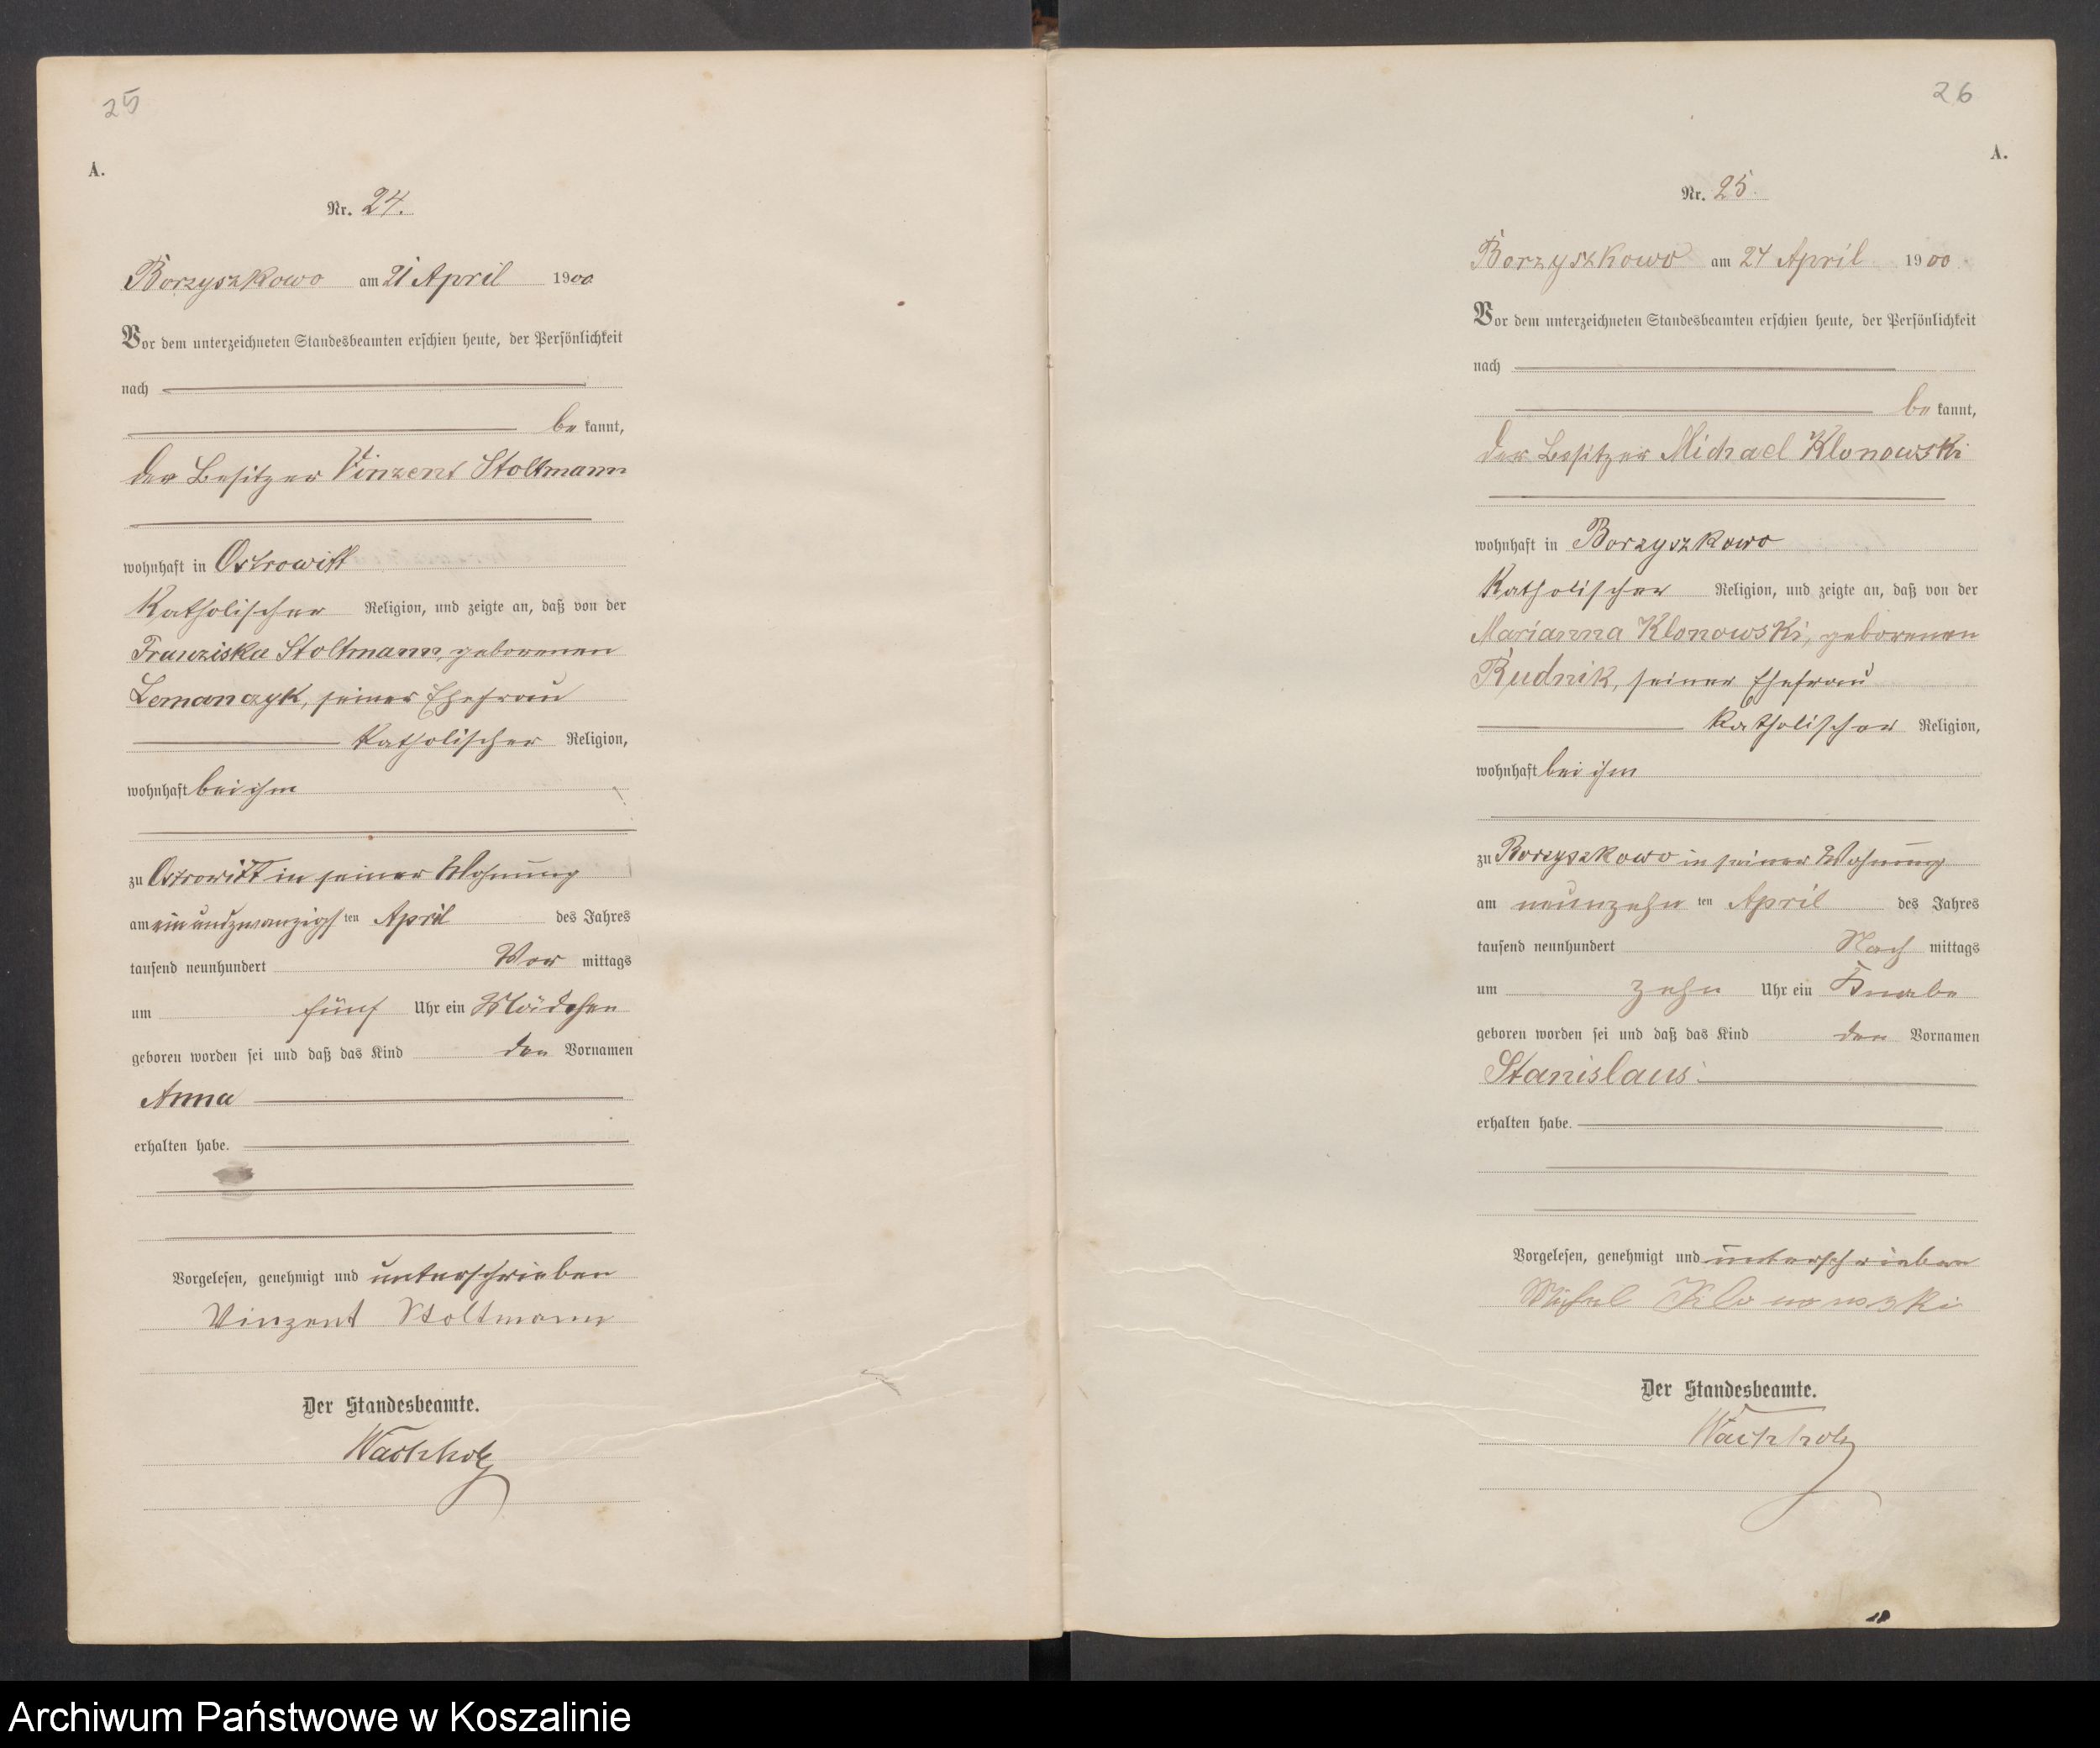 25
A.
Nr. 24.
Borzyszkowo am 21 April 1900
Vor dem unterzeichneten Standesbeamten erschien heute, der Persönlichkeit
nach
be kannt,
der Besitzer Vinzent Stoltmann
wohnhaft in Ostrowitt
Katholischer Religion, und zeigte an, daß von der
Franziska Stoltmann, geborenen
Lemanczyk, seiner Ehefrau
Katholischer Religion,
wohnhaft bei ihm
zu Ostrowitt in seiner Wohnung
am ein und zwanzigsten April des Jahres
tausend neunhundert Vor mittags
um fünf Uhr ein Mädchen
geboren worden sei und daß das Kind den Vornamen
Anna
erhalten habe.
Vorgelesen, genehmigt und unterschrieben
Vinzent Stoltmann
Der Standesbeamte.
Wachholz
26
A.
Nr. 25.
Borzyszkowo am 24 April 1900
Vor dem unterzeichneten Standesbeamten erschien heute, der Persönlichkeit
nach
be kannt,
der Besitzer Michael Klonowski
wohnhaft in Borzyszkowo
Katholischer Religion, und zeigte an, daß von der
Marianna Klonowski, geborenen
Rudnik, seiner Ehefrau
Katholischer Religion,
wohnhaft bei ihm
zu Borzyszkowo in seiner Wohnung
am neunzehn ten April des Jahres
tausend neunhundert Nach mittags
um zehn Uhr ein Knabe
geboren worden sei und daß das Kind den Vornamen
Stanislaus
erhalten habe.
Vorgelesen, genehmigt und unterschrieben
Klonowski
Der Standesbeamte.
Wachholz
Archiwum Państwowe w Koszalinie